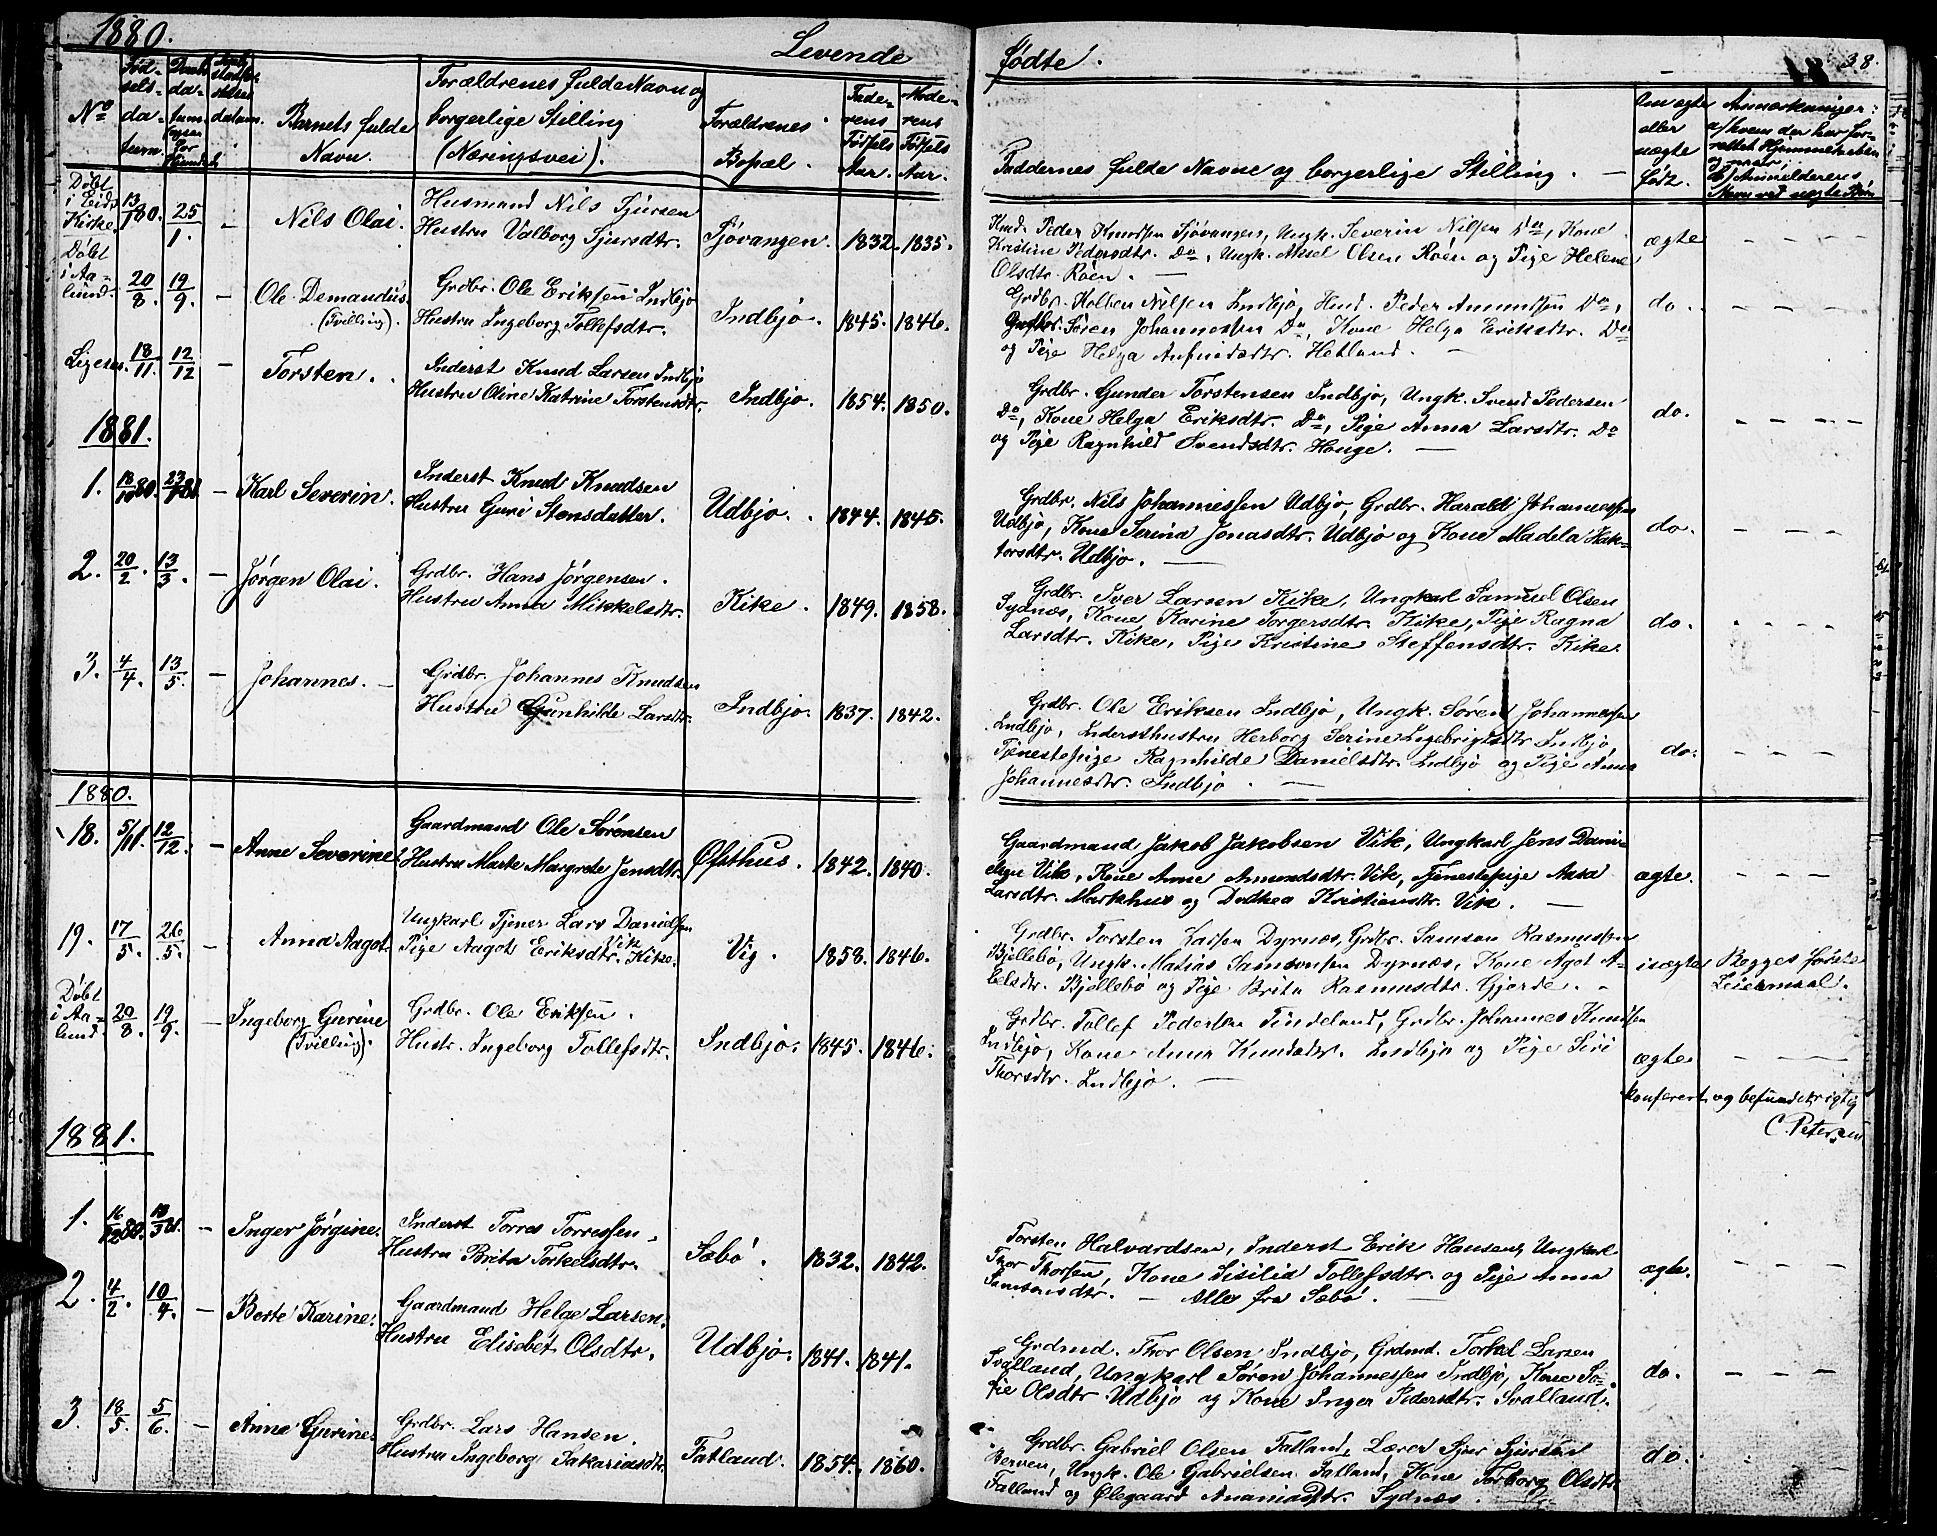 1880.
Levende
fødte.
18
38.
No
Fød-
sels-
da-
tum.
Daabs
da-
tum
datum.
Barnets fulde
Navn.
Forældrenes fulde Navn og
borgerlige Stilling
(Næringsvei).
Forældrenes
Bopæl.
Fade-
rens
Fødsels
Aar.
Mode-
rens
Fødsels
Aar.
Faddernes fulde Navne og borgerlige Stilling. —
Om ægte
eller
uægte
født.
Anmærkninger:
a/ hvem der har for-
rettet Hjemmedaaben
og naar;
b/ Anmelderens
Navn ved uægte Børn
Døbt
i Eids
Kirke.
13/1 80. 25/1. – Nils Olai.
Husmand Nils Sjursen
Hustru Valborg Sjursdtr.
Sjøvangen. 1832. 1835.
Hmd. Peder Knudsen Sjøvangen, Ungk. Severin Nilsen Do, Kone
Kristine Pedersdtr. Do, Ungk. Aksel Olsen Røen og Pige Helene
Olsdtr. Røen. —
ægte – – – –
Døbt
i Aa-
lund.
20/8. 19/9. – Ole Demandus.
(Tvilling).
Grdbr. Ole Eriksen Indbjo
Hustru Ingeborg Tollefsdtr.
Indbjo. 1845. 1846.
Grdbr. Kolben Nilsen Indbjo, Hmd. Peder Amundsen Do,
Søren Johannessen Do, Kone Helga Eriksdtr. Do
og Pige Helga Anfindsdtr. Hetland. —
do. – – – –
Ligesaa. 18/11. 12/12 – Torsten.
Inderst Knud Larsen Indbjo
Hustru Oline Katrine Torstensdtr.
Indbjo. 1854. 1850.
Grdbr. Gunder Torstensen Indbjo, Ungk. Svend Pedersen
Do, Kone Helga Eriksdtr. Do, Pige Anna Larsdtr. Do
og Pige Ragnhild Svendsdtr. Hauge. —
do. – – – –
1881.
1. 80. 81. – Karl Severin.
Inderst Knud Knudsen
Hustru Guri Stensdatter.
Udbjo. 1844. 1845.
Grdbr. Nils Johannessen Udbjo, Grdbr. Harald Johannessen
Udbjo, Kone Serina Jonasdtr. Udbjo og Kone Madela Hak-
torsdtr. Udbjo. —
do. – – –
2. 20/2. 13/3. – Jørgen Olai.
Grdbr. Hans Jørgensen.
Hustru Anna Mikkelsdtr.
Kike. 1849. 1858.
Grdbr. Iver Larsen Kike, Ungkarl Samuel Olsen
Sydnæs, Kone Karine Torgersdtr. Kike, Pige Ragna
Larsdtr. Kike, Pige Kristine Steffensdtr. Kike.
do. – – – –
3. 4/4. 13/5. – Johannes. –
Grdbr. Johannes Knudsen
Hustru Gunhilde Larsdtr.
Indbjo. 1837. 1842.
Grdbr. Ole Eriksen Indbjo, Ungk. Søren Johannessen
Indbjo, Indersthustru Herborg Serine Ingebrigtsdtr. Indbjo,
Tjenestepige Ragnhilde Danielsdtr. Indbjo og Pige Anna
Johannesdtr. Indbjo. —
do. – – – –
1880.
18. 5/11. 12/12. – Anne Severine.
Gaardmand Ole Sørensen
Hustru Marte Margrete Jensdtr.
Østhus. 1842. 1840.
Gaardmand Jakob Jakobsen Vik, Ungkarl Jens Dani-
elsen Vik, Kone Anne Amundsdtr. Vik, Tjenestepige Aasa
Larsdtr. Markhus og Dorthea Kristiansdtr. Vik. —
ægte. – – – –
19. 17/5. 26/5. – Anna Aagot.
Ungkarl Tjener Lars Danielsen
Vik
Pige Aagot Eriksdtr. Kike.
Vig. 1858. 1846.
Grdbr. Torsten Larsen Dyrnæs, Grdbr. Samson Rasmussen
Bjellebø, Ungk. Matias Samsonsen Dyrnæs, Kone Agot A-
belsdtr. Bjellebø og Pige Brita Rasmusdtr. Gjerde. –
uægte Begges første
Leiermaal.
Døbt
i Aa-
lund.
20/8. 19/9. – Ingeborg Gurine
(Tvilling).
Grdbr. Ole Eriksen.
Hustr. Ingeborg Tollefsdtr.
Indbjo. 1845. 1846.
Grdbr. Tollef Pedersen Tindeland, Grdbr. Johannes Knudsen
Indbjo, Kone Anna Knudsdtr. Indbjo og Pige Siri
Thorsdtr. Indbjo. —
ægte – – –
konferert og befundet rigtig
C. Petersen
1881.
1. 16/12 80. 10/3 81. – Inger Jørgine.
Inderst Torres Torressen.
Hustru Brita Torkelsdtr.
Sæbø. 1832. 1842.
Torsten Halvardsen, Inderst Erik Hansen, Ungkarl
Thor Thorsen, Kone Sisilia Tollefsdtr. og Pige Anna
Samsonsdtr. — Alle fra Sæbø. —
ægte. – – – –
2. 4/2. 10/4. – Berte Karine.
Gaardmand Helge Larsen.
Hustru Elisabet Olsdtr.
Udbjo. 1841. 1841.
Grdmd. Thor Olsen Indbjo, Grdmd. Torkel Larsen
Svalland, Ungkarl Søren Johannessen Indbjo, Kone So-
fie Olsdtr Udbjo og Kone Inger Pedersdtr. Svalland.
do. – – – –
3. 18/5. 5/6. – Anna Gurine.
Grdbr. Lars Hansen.
Hustru Ingeborg Sakariasdtr.
Fatland. 1854. 1860.
Grdbr. Gabriel Olsen Fatland, Lærer Sjur Sjursen
Berven, Ungk. Ole Gabrielsen Fatland, Kone Torborg Olsdtr.
Fatland og Ølegaard Ananiasdtr. Sydnæs.
do. – – –